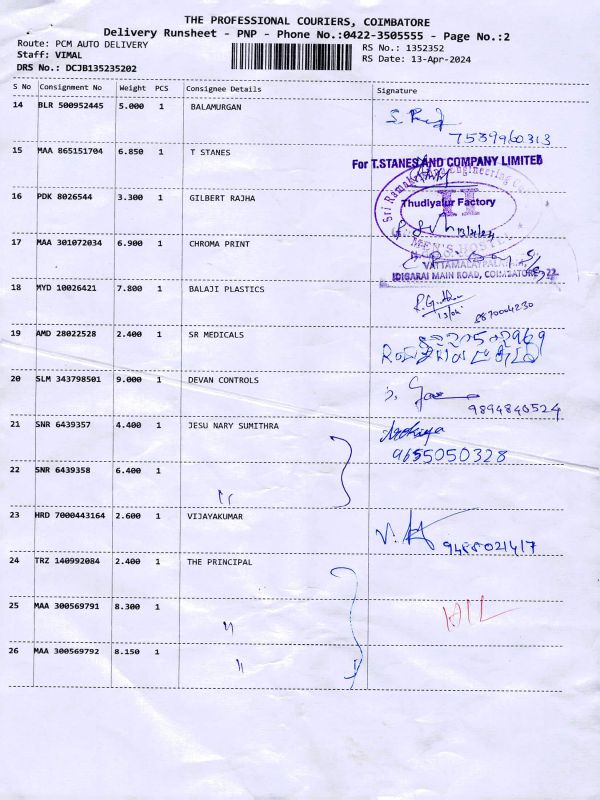 THE PROFESSIONAL COURIERS, COIMBATORE
Delivery Runsheet - PNP - Phone No.:0422-3505555 - Page No.:2
Route: PCM AUTO DELIVERY
RS No.: 1352352
Staff: VIMAL
RS Date: 13-Apr-2024
DRS No.: DCJB135235202
S No Consignment No Weight PCS Consignee Details Signature
14 BLR 500952445 5.000 1 BALAMURGAN
7539960313
15 MAA 865151704 6.850 1 T STANES
For T.STANES AND COMPANY LIMITED
Thudiyalur Factory
16 PDK 8026544 3.300 1 GILBERT RAJHA
17 MAA 301072034 6.900 1 CHROMA PRINT
MEN'S HOSTEL
IDIGARAI MAIN ROAD, COIMBATORE - 22
18 MYD 10026421 7.800 1 BALAJI PLASTICS
8870004230
19 AMD 28022528 2.400 1 SR MEDICALS
20 SLM 343798501 9.000 1 DEVAN CONTROLS
9894840524
21 SNR 6439357 4.400 1 JESU NARY SUMITHRA
9655050328
22 SNR 6439358 6.400 1 "
23 HRD 7000443164 2.600 1 VIJAYAKUMAR
9488021417
24 TRZ 140992084 2.400 1 THE PRINCIPAL
25 MAA 300569791 8.300 1 "
26 MAA 300569792 8.150 1 "